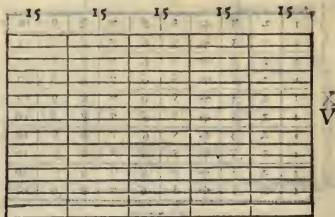 15 15 15 15 15
X
V